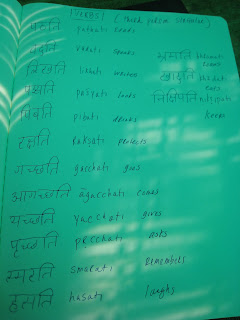 VERBS (third person singular)
पठति pathati reads
वदति vadati speaks
लिखति likhati writes
पश्यति paśyati looks
पिबति pibati drinks
रक्षति rakṣati protects
गच्छति gacchati goes
आगच्छति āgacchati comes
यच्छति yacchati gives
पृच्छति pṛcchati asks
स्मरति smarati remembers
हसति hasati laughs
खादति khādati eats
निक्षिपति nikṣipati
keeps